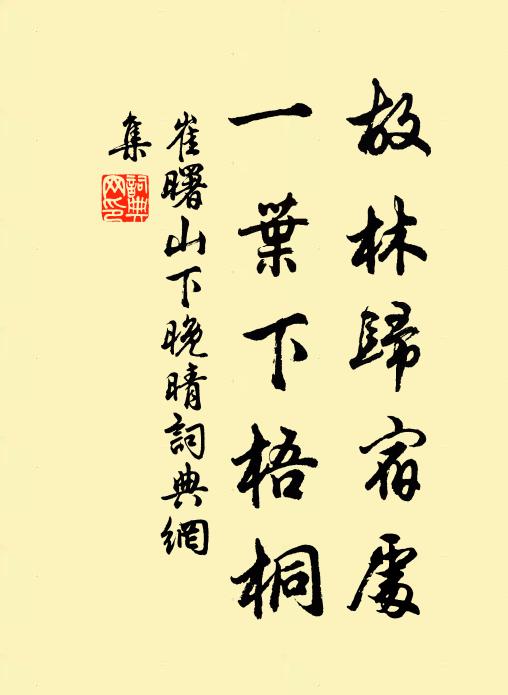 故林歸宿處
一葉下梧桐
崔曙山下晚晴詞典網
集
詞典
网印